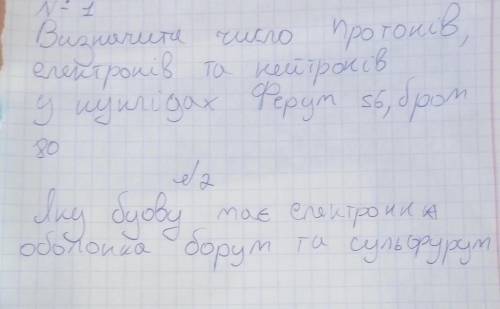 № 1
Визначите число протонів,
електронів та нейтронів
у нуклідах Ферум 56, бром
80
№2
Яку будову має електронна
оболонка борум та сульфурум